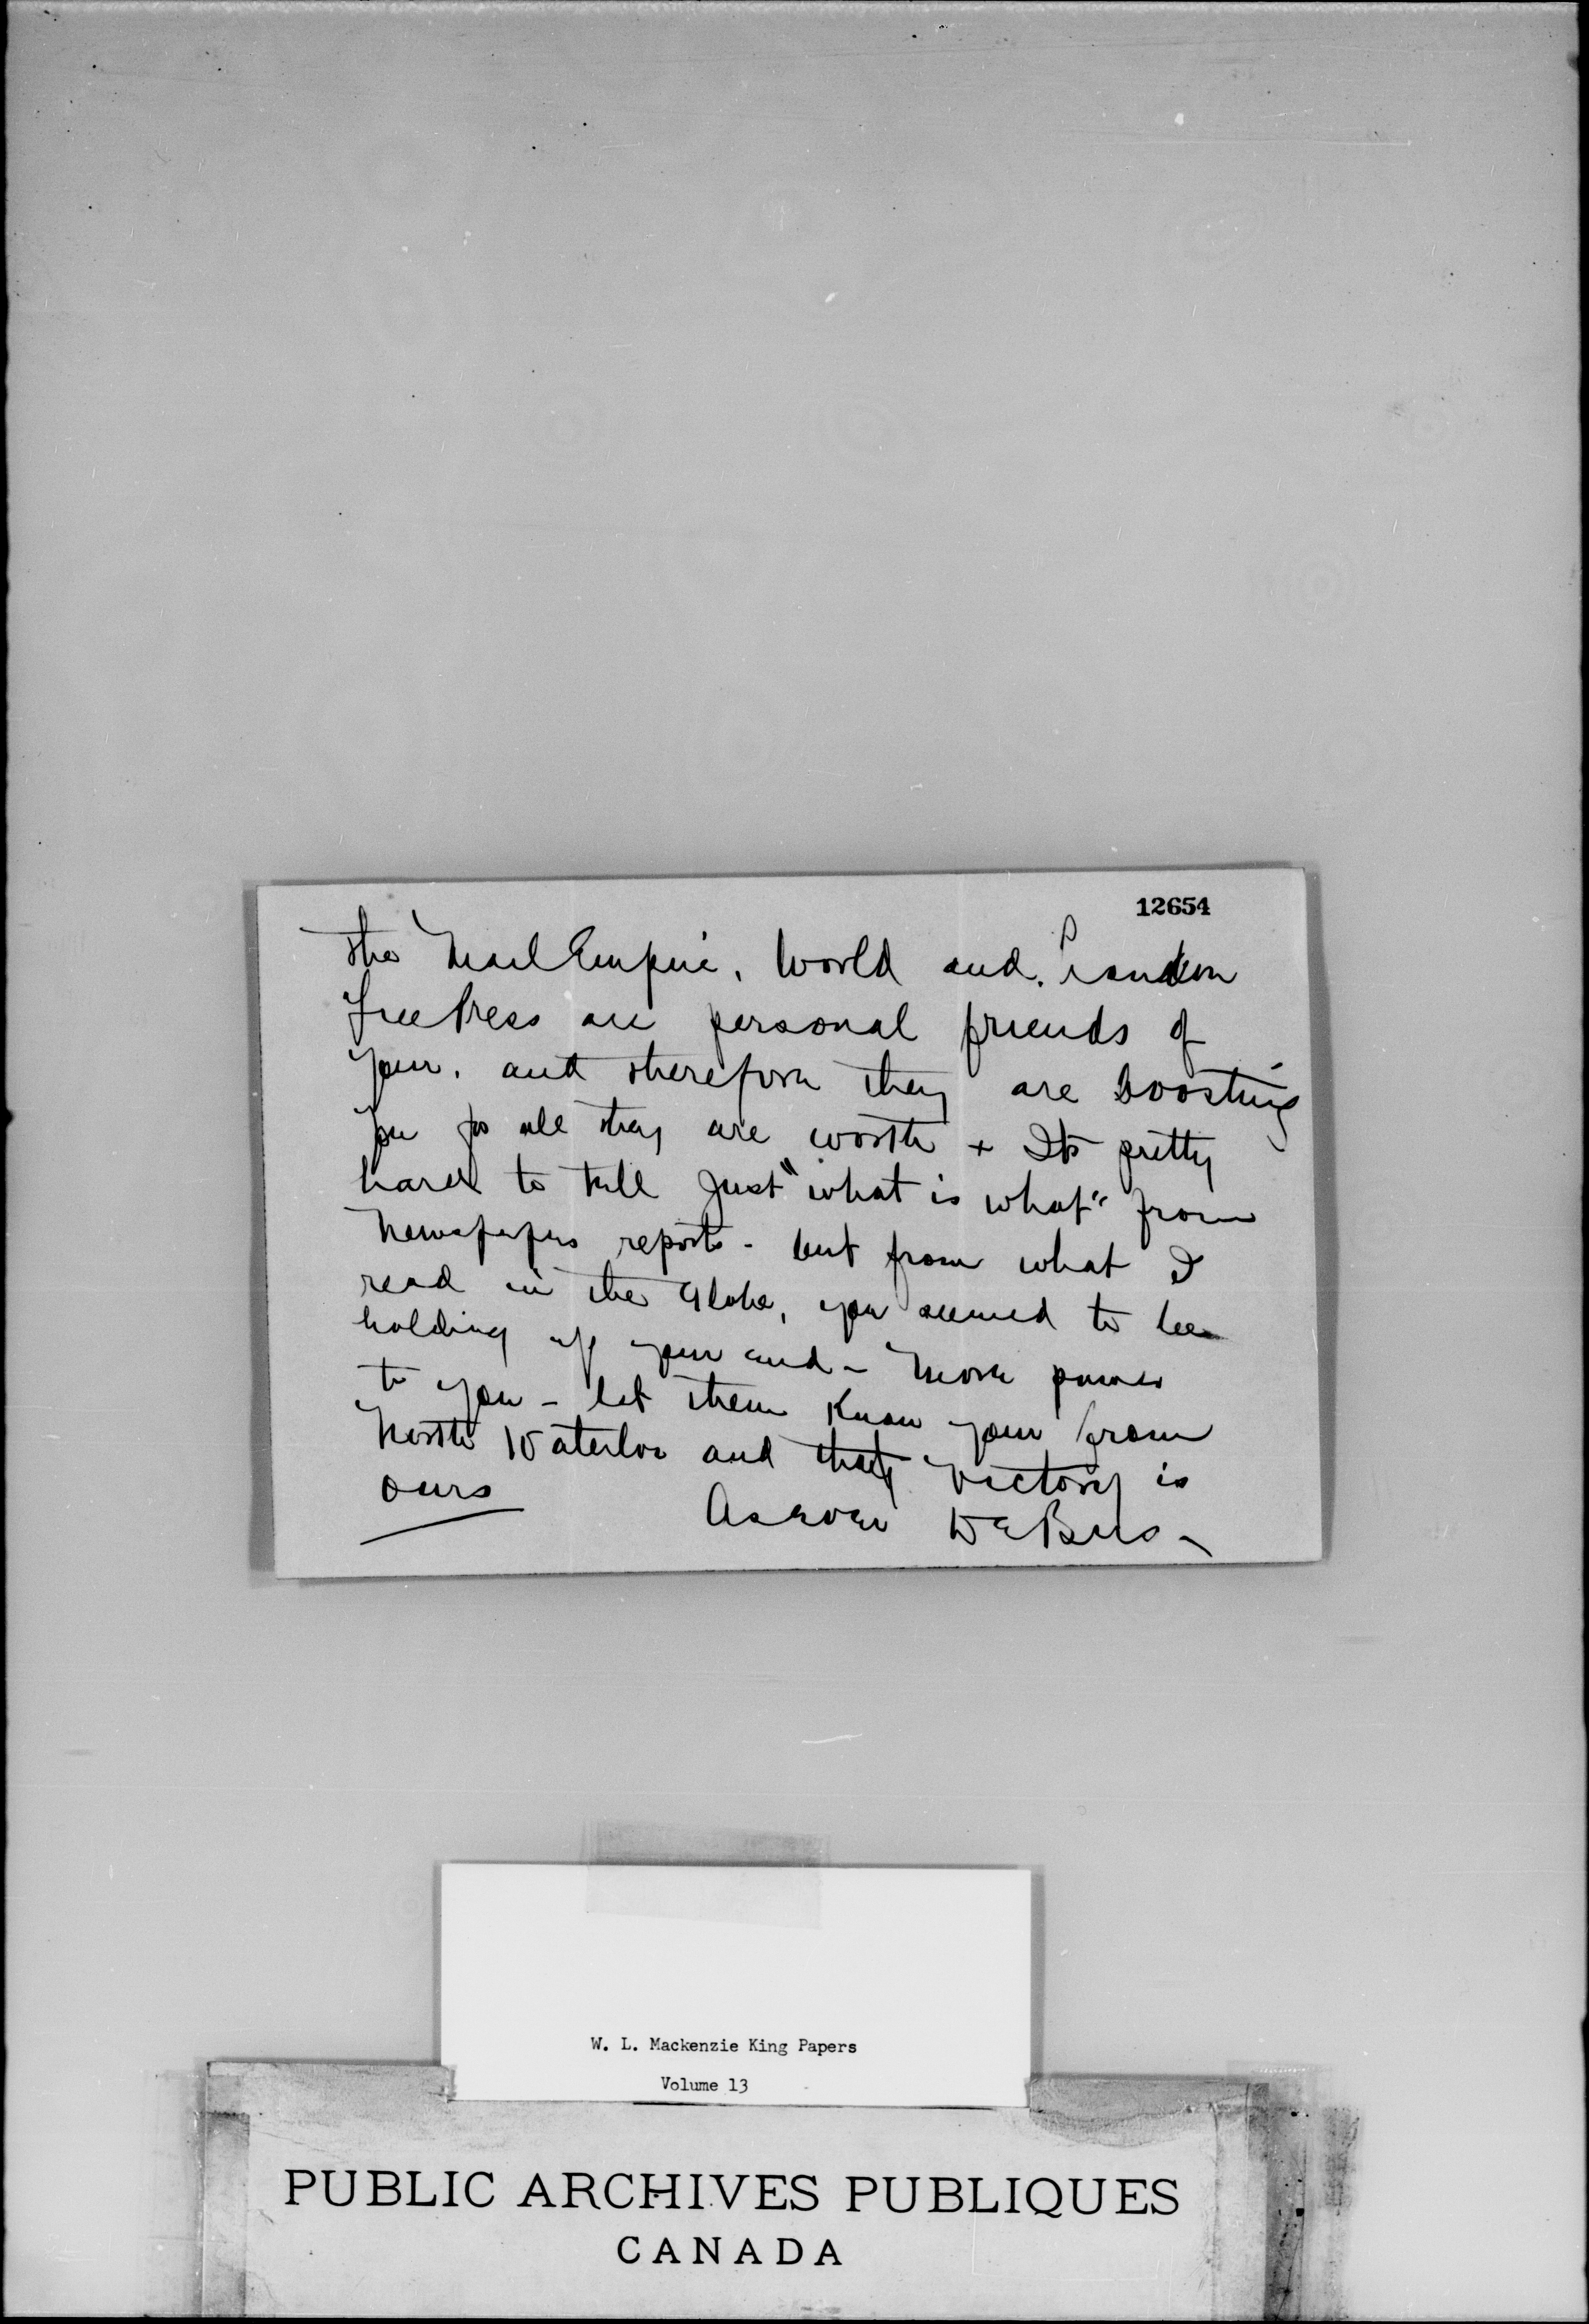 12654
The Mail Empire, World and London
Free Press are personal friends of
your, and therefore they are boosting
you for all they are worth + Its pretty
hard to tell Just "what is what" from
Newspapers reports - but from what I
read in the Globe, you seemed to be
holding up your end - More power
to you - let them Know your from
North Waterloo and that Victory is
ours DeBus -
W. L. Mackenzie King Papers
Volume 13
PUBLIC ARCHIVES PUBLIQUES
CANADA